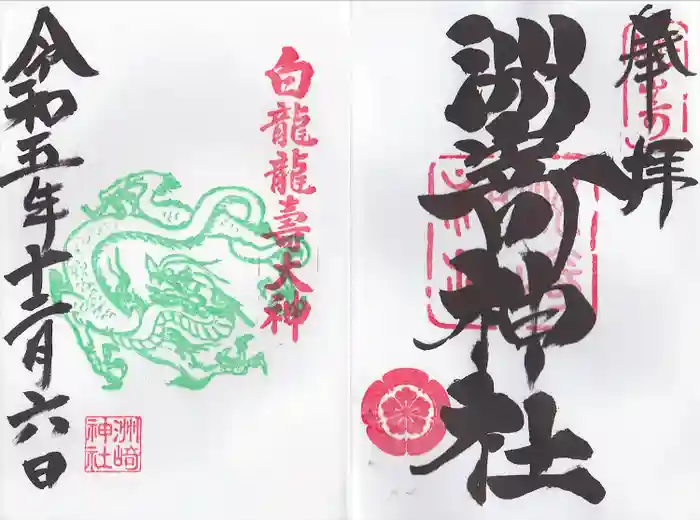 奉拝
洲嵜神社
白龍龍壽大神
令和五年十二月六日
洲崎
神社